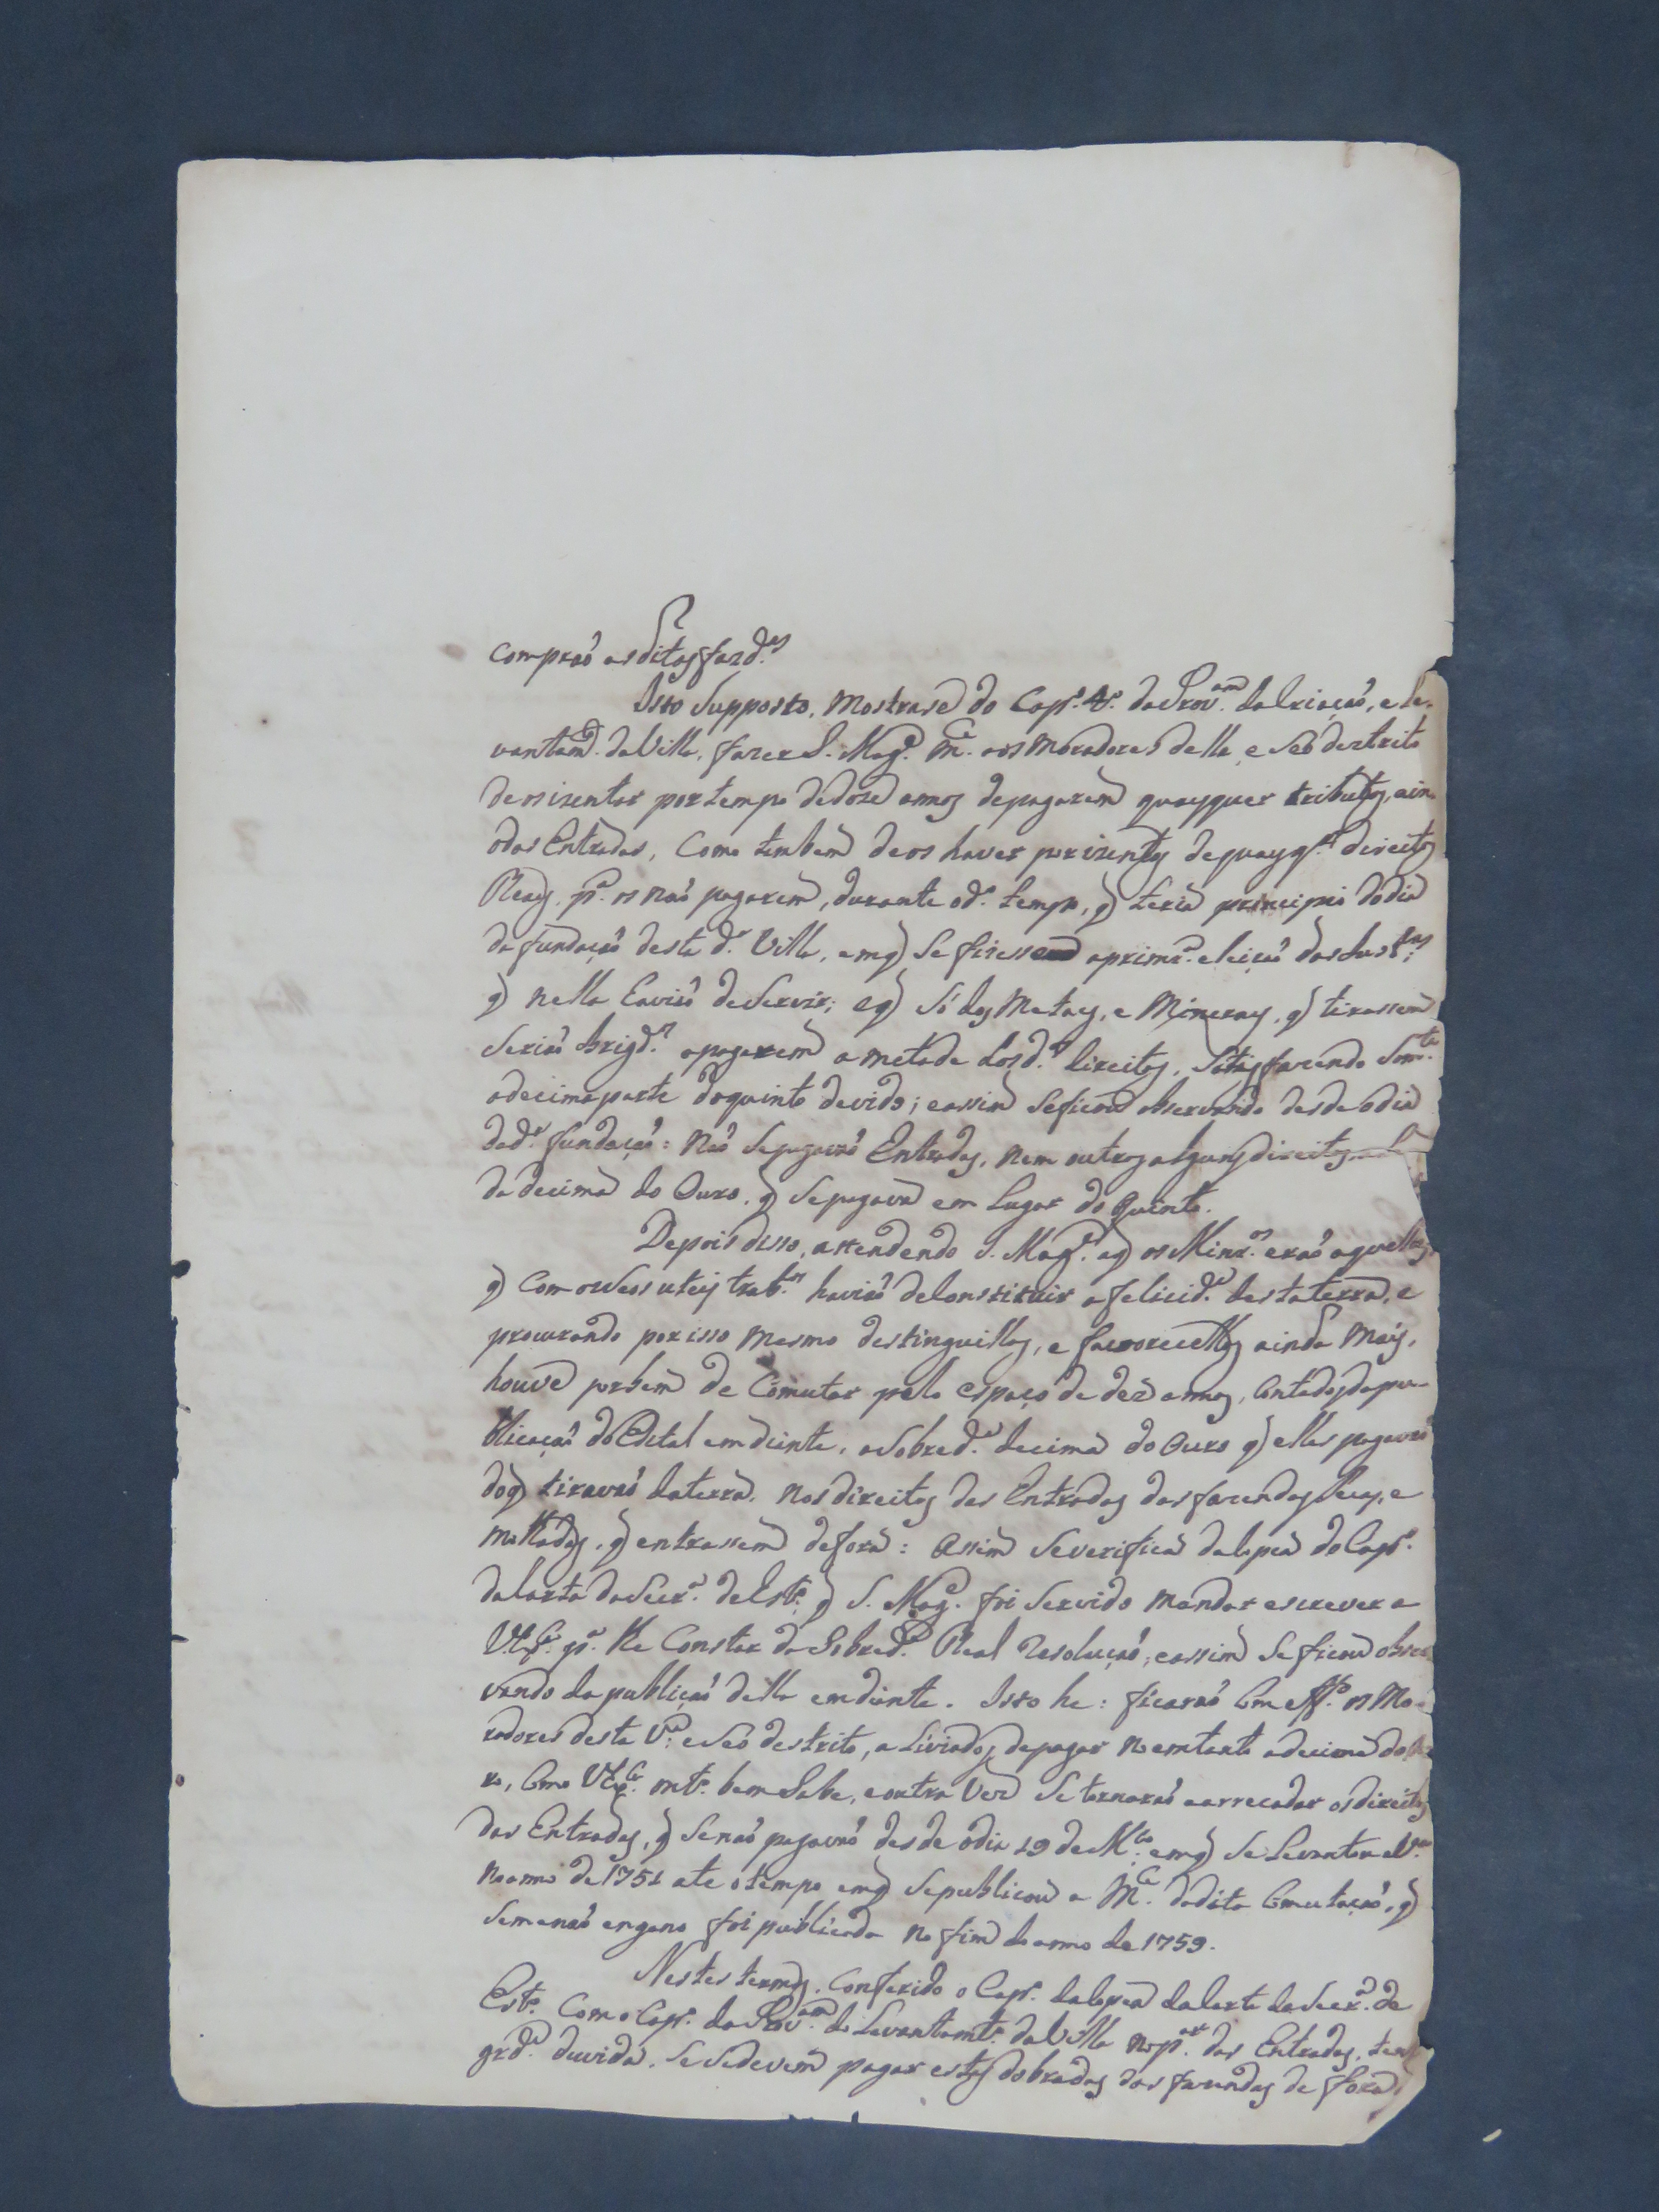 compraõ as ditas fazd.as
Isto Supposto, Mostrase do Cap.o 4.o da Prov.am da Criaçaõ, e Le-
vantam.to da Villa, fazer S. Mag.e M.ce aos Moradores della, e Seo destrito
de os izentar por tempo de doze annos de pagarem quaysquer tributos, ain-
das Entradas, Como tambem de os haver por izentos de quaysq.r direitos
Reays p.a os naõ pagarem, durante o d.o tempo, q̃ teria principio do dia
da fundaçaõ desta d.a Villa, em q̃ Se fizessem a prim.ra eleiçaõ das Just.as
q̃ nella haviaõ de Servir; e q̃ Só dos Metaes, e Mineraes, q̃ tirassem
Seriaõ obrigd.os a pagarem a metade dos d.os direitos, Satisfazendo Som.te
a decima parte do quinto devido; e assim Se ficou observando desde o dia
da d.a fundaçaõ: Naõ Se pagavaõ Entradas, nem outros alguns direitos
da decima do Ouro, q̃ Se pagava em Lugar do Quinto.
Depois disso, attendendo S. Mag.e a q̃ os Minr.os eraõ aquelles,
q̃ Com os Seos uteis trab.os haviaõ de Constituir a felicid.e desta terra, e
procurando por isso mesmo destinguillos, e favorecellos ainda Mais,
houve por bem de Comutar pelo espaço de dez annos, Contados da pu-
blicaçaõ do Edital em diante, a Sobred.a decima do Ouro q̃ elles pagavaõ
do q̃ tiravaõ da terra, nos direitos das Entradas das fazendas Secas, e
Molhadas, q̃ entrassem de fora: Assim Se verifica da Copea do Cap.o
da Carta da Secr.a de Est.o q̃ S. Mag.e foi Servido Mandar escrever a
V. Ex.ca p.a lhe Constar da Sobred.a Real Resoluçaõ; e assim Se ficou obser-
vando da publicaõ della em diante. Isto he: ficaraõ Com eff.to os Mo-
radores desta V.a e Seo destrito, aliviados de pagar no emtanto a decima do
ro, Como V. Ex.ca mt.o bem Sabe, e outra vez Se tornaraõ a arrecadar os direitos
das Entradas, q̃ Se naõ pagavaõ desde o dia 19 de M.ço em q̃ Se Levantou a V.a
no anno de 1752 ate o tempo em q̃ Se publicou a M.ce da dita Comutaçaõ, q̃
Se me naõ engano foi publicada no fim do anno de 1759.
Nestes termos, Conferido o Cap.o da Copea da Carta da Secr.a de
Est.o Com o Cap.o da Prov.am do Levantamt.o da Villa no p.ar das Entradas, tem
grd.e duvida, Se Se devem pagar estas dobradas das fazendas de fora,